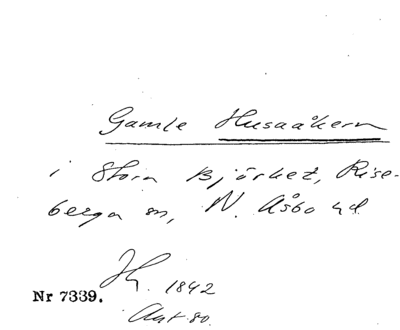 Gamle Husaåkern
i Stora Björket, Rise-
berga sn, N. Åsbo hd
Nr 7339.
1842
Akt 80.